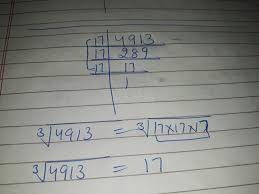 17 | 4913
17 | 289
17 | 17
1
∛4913 = ∛17×17×7
∛4913 = 17